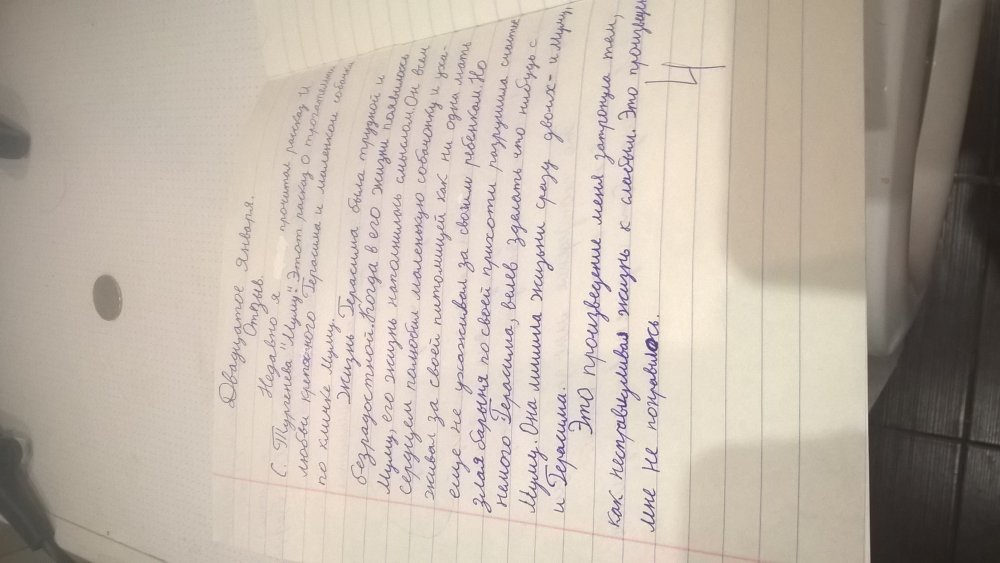 Двадцатое января.
Отзыв.
Недавно я прочитал расказ И
С. Тургенева "Муму". Этот расказ о трогательной
любви крепосного Герасима и маленкой собачки
по кличке Муму.
Жизнь Герасима была трудной и
безрадостной. Когда в его жизни появилось
Муму, его жизнь наполнилось смыслом. Он всем
сердцем полюбил маленькую собачонку и уха-
живал за своей питомицей как ни одна мать
еще не ухаживал за своим ребенкам. Но
злая барыня по своей прихоти разрушила счастье
немого Герасима, велев зделать что нибудь с
Муму. Она лишила жизьни сразу двоих - и Муму,
и Герасима.
Это произведение меня затронула тем,
как несправидливая жизнь к слабым. Это произведен
мне не понравилось.
4